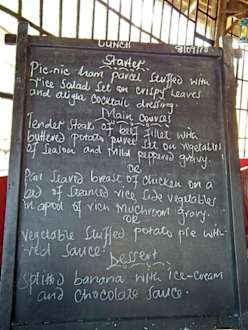 LUNCH
Starter
Pic-nic ham parcel stuffed with
rice salad set on crispy leaves
and cocktail dressing.
Main Courses
Tender steak of beef fillet with
buttered potato puree set on vegetables
of season and mild peppered gravy.
OR
Pan seared breast of chicken on a
bed of steamed rice, side vegetables
in a pool of rich Mushroom gravy.
OR
Vegetable stuffed potato pie with
red sauce.
Dessert
Splitted banana with ice-cream
and chocolate sauce.